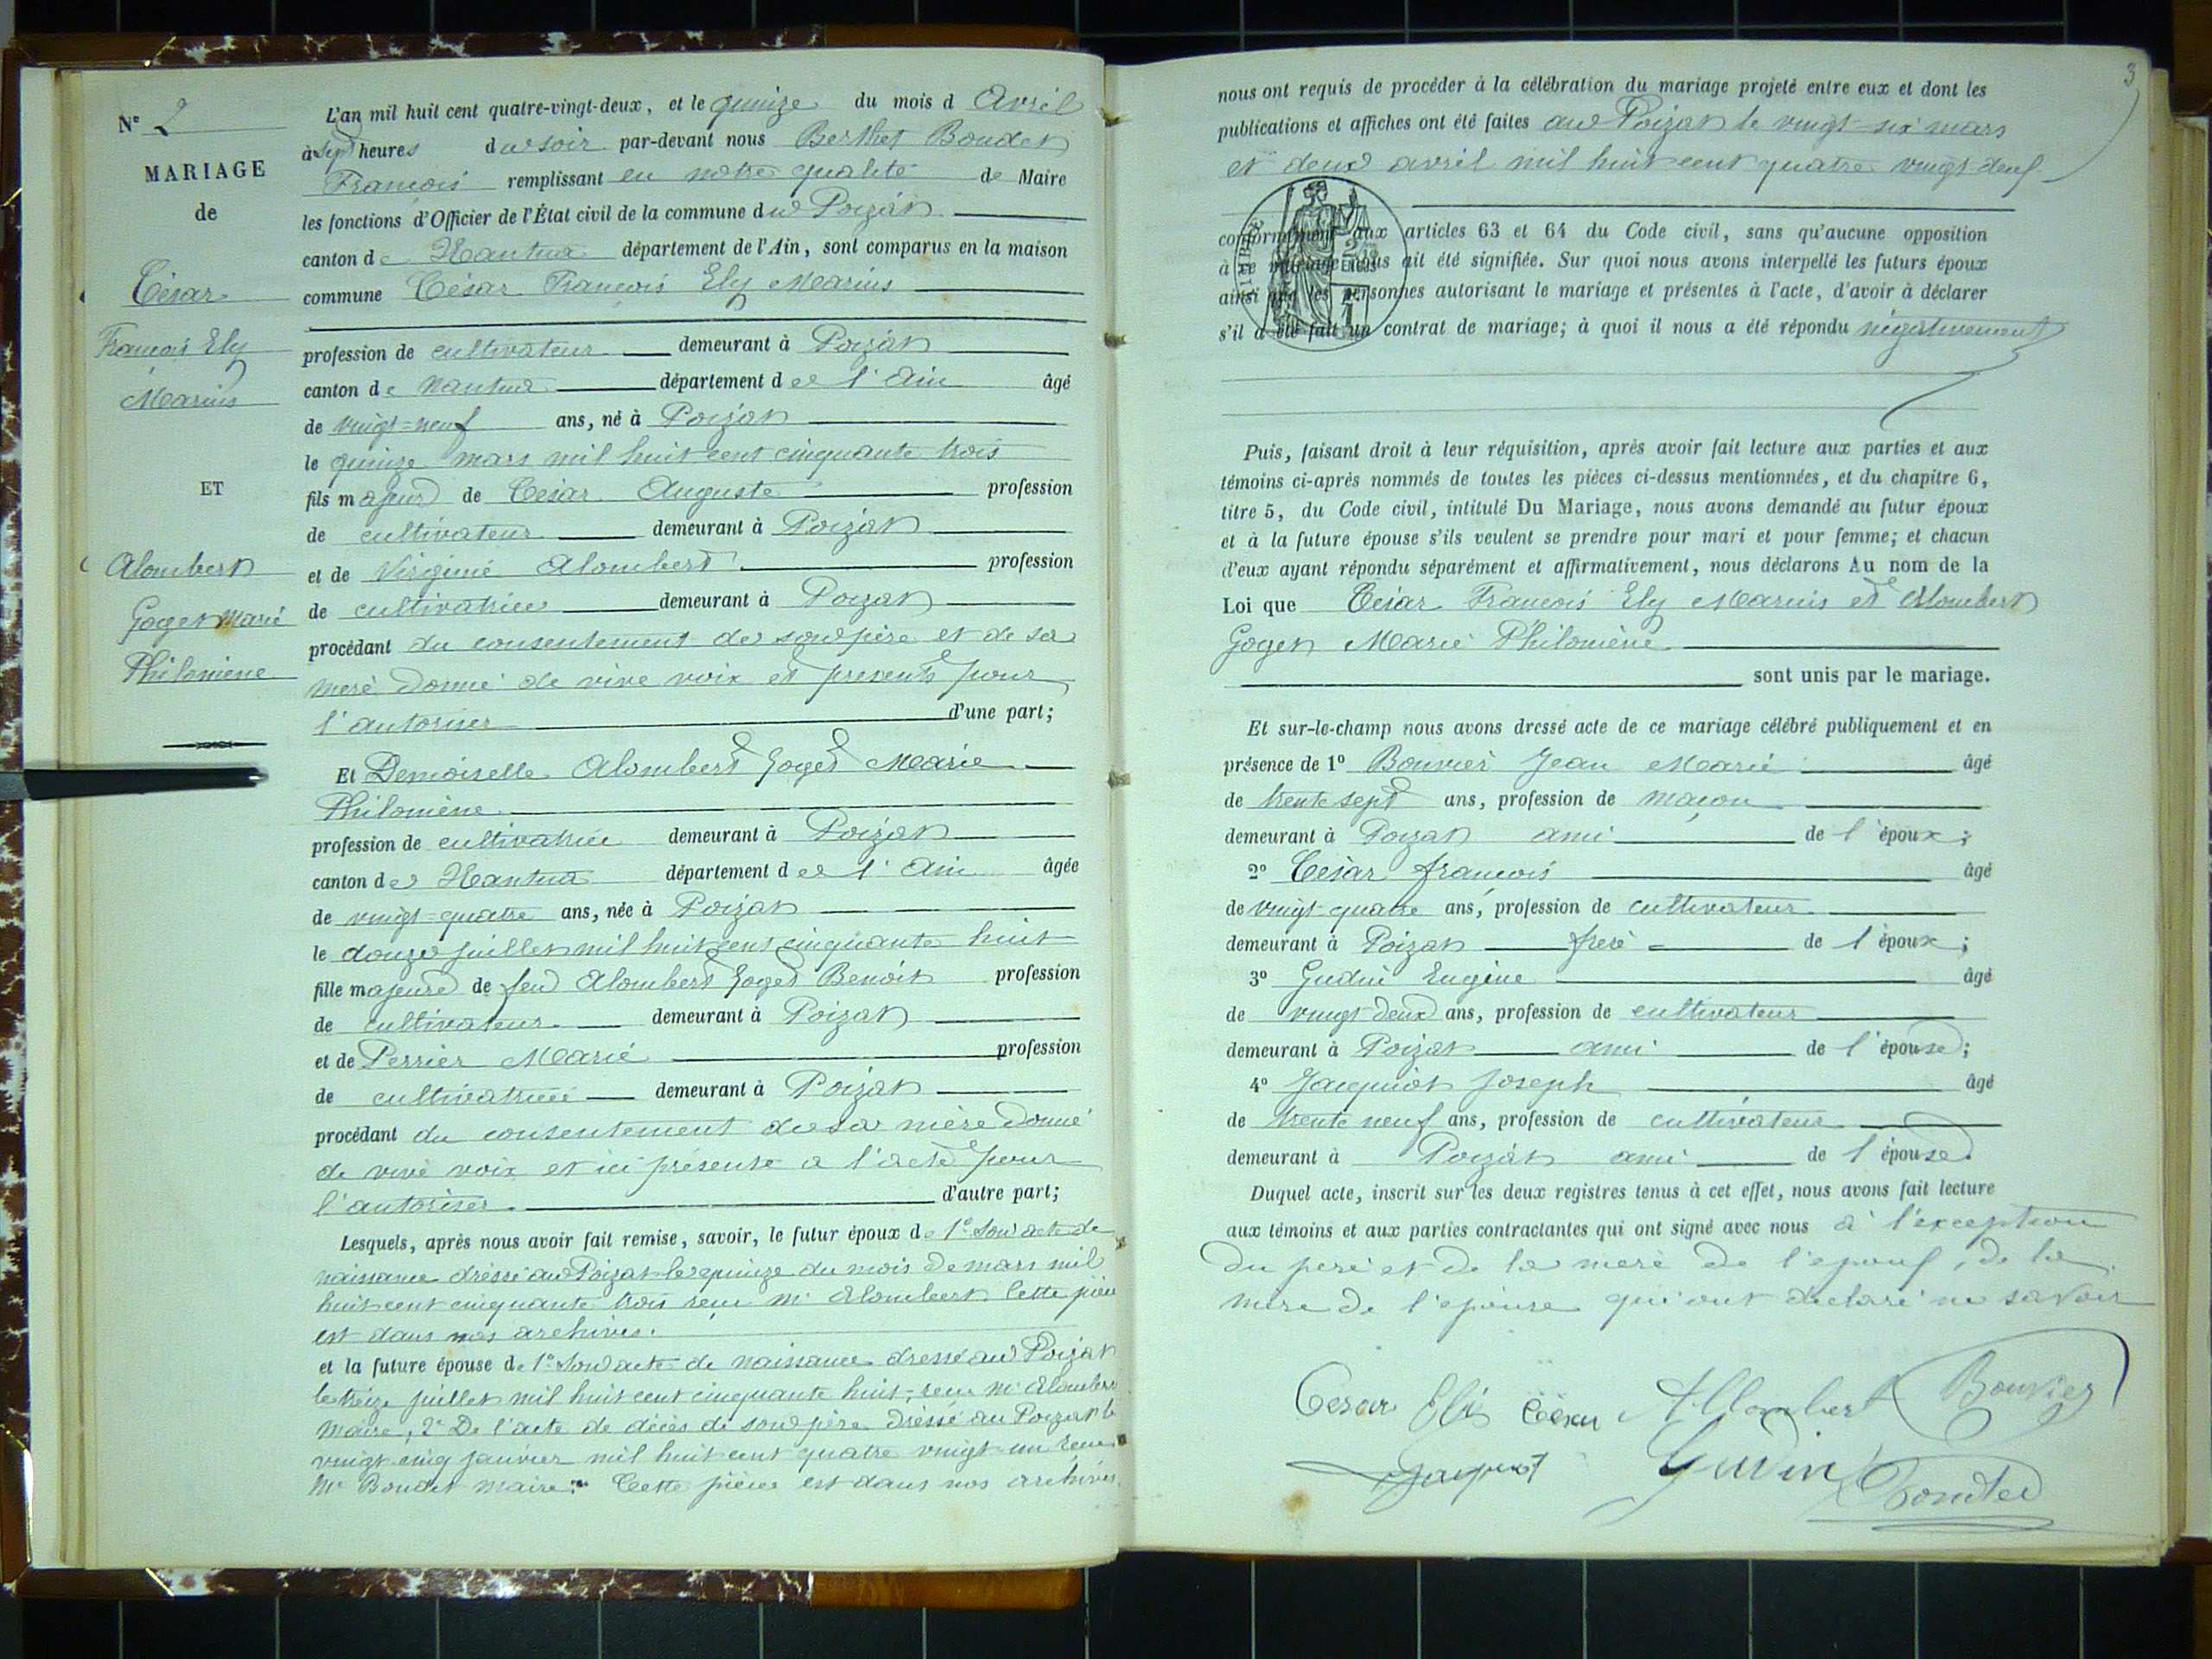 N° 2
MARIAGE
de
César
François Ely
Marius
ET
Alombert
Goget Marie
Philomène
L'an mil huit cent quatre-vingt-deux, et le quinze du mois d Avril
à sept heures du soir par-devant nous Berthet Boudet
François remplissant en notre qualité de Maire
les fonctions d'Officier de l'État civil de la commune du Poizat
canton de Nantua département de l'Ain, sont comparus en la maison
commune César François Ely Marius
profession de cultivateur demeurant à Poizat
canton de Nantua département de l'Ain âgé
de vingt=neuf ans, né à Poizat
le quinze mars mil huit cent cinquante trois
fils majeur de César Auguste profession
de cultivateur demeurant à Poizat
et de Virginie Alombert profession
de cultivatrice demeurant à Poizat
procédant du consentement de son père et de sa
merè donné de vive voix et presents pour
l'autoriser d'une part;
Et Demoiselle Alombert Goget Marie
Philomène
profession de cultivatrice demeurant à Poizat
canton de Nantua département de l'Ain âgée
de vingt=quatre ans, née à Poizat
le douze juillet mil huit cent cinquante huit
fille majeure de feu Alombert Goget Benoit profession
de cultivateur demeurant à Poizat
et de Perrier Marie profession
de cultivatrice demeurant à Poizat
procédant du consentement de sa mère donné
de vive voix et ici présente a l'acte pour
l'autoriser. d'autre part;
Lesquels, après nous avoir fait remise, savoir, le futur époux de 1° Son acte de
naissance dréssé au Poizat le quinze du mois de mars mil
huit cent cinquante trois recu Mr Alombert Cette pièce
est dans nos archives.
et la future épouse de 1° Son acte de naissance dressé au Poizat
le treize juillet mil huit cent cinquante huit, recu Mr Alombert
Maire, 2° De l'acte de décès de son père dréssé au Poizat le
vingt cinq janvier mil huit cent quatre vingt un recu
Mr Boudet maire. Cette pièce est dans nos archives
3
nous ont requis de procéder à la célébration du mariage projeté entre eux et dont les
publications et affiches ont été faites au Poizat le vingt six mars
et deux avril mil huit cent quatre vingt deux
conformément aux articles 63 et 64 du Code civil, sans qu'aucune opposition
à ce mariage nous ait été signifiée. Sur quoi nous avons interpellé les futurs époux
ainsi que les personnes autorisant le mariage et présentes à l'acte, d'avoir à déclarer
s'il a été fait un contrat de mariage; à quoi il nous a été répondu négativement
Puis, faisant droit à leur réquisition, après avoir fait lecture aux parties et aux
témoins ci-après nommés de toutes les pièces ci-dessus mentionnées, et du chapitre 6,
titre 5, du Code civil, intitulé Du Mariage, nous avons demandé au futur époux
et à la future épouse s'ils veulent se prendre pour mari et pour femme; et chacun
d'eux ayant répondu séparément et affirmativement, nous déclarons Au nom de la
Loi que César François Ely Marius et Alombert
Goget Marie Philomène
sont unis par le mariage.
Et sur-le-champ nous avons dressé acte de ce mariage célébré publiquement et en
présence de 1° Bouvier Jean Marie âgé
de trente sept ans, profession de maçon
demeurant à Poizat ami de l'époux;
2° César françois âgé
de vingt quatre ans, profession de cultivateur
demeurant à Poizat frere de l'époux;
3° Gudin Eugène âgé
de vingt deux ans, profession de cultivateur
demeurant à Poizat ami de l'épouse;
4° Jacquiot Joseph âgé
de trente neuf ans, profession de cultivateur
demeurant à Poizat ami de l'épouse.
Duquel acte, inscrit sur les deux registres tenus à cet effet, nous avons fait lecture
aux témoins et aux parties contractantes qui ont signé avec nous à l'exception
du perè et de la merè de l'epoux, de la
mère de l'épouse qui ont déclaré ne savoir
Cesar Eli César Allombert Bouvier
Jacquiot Gudin Boudet